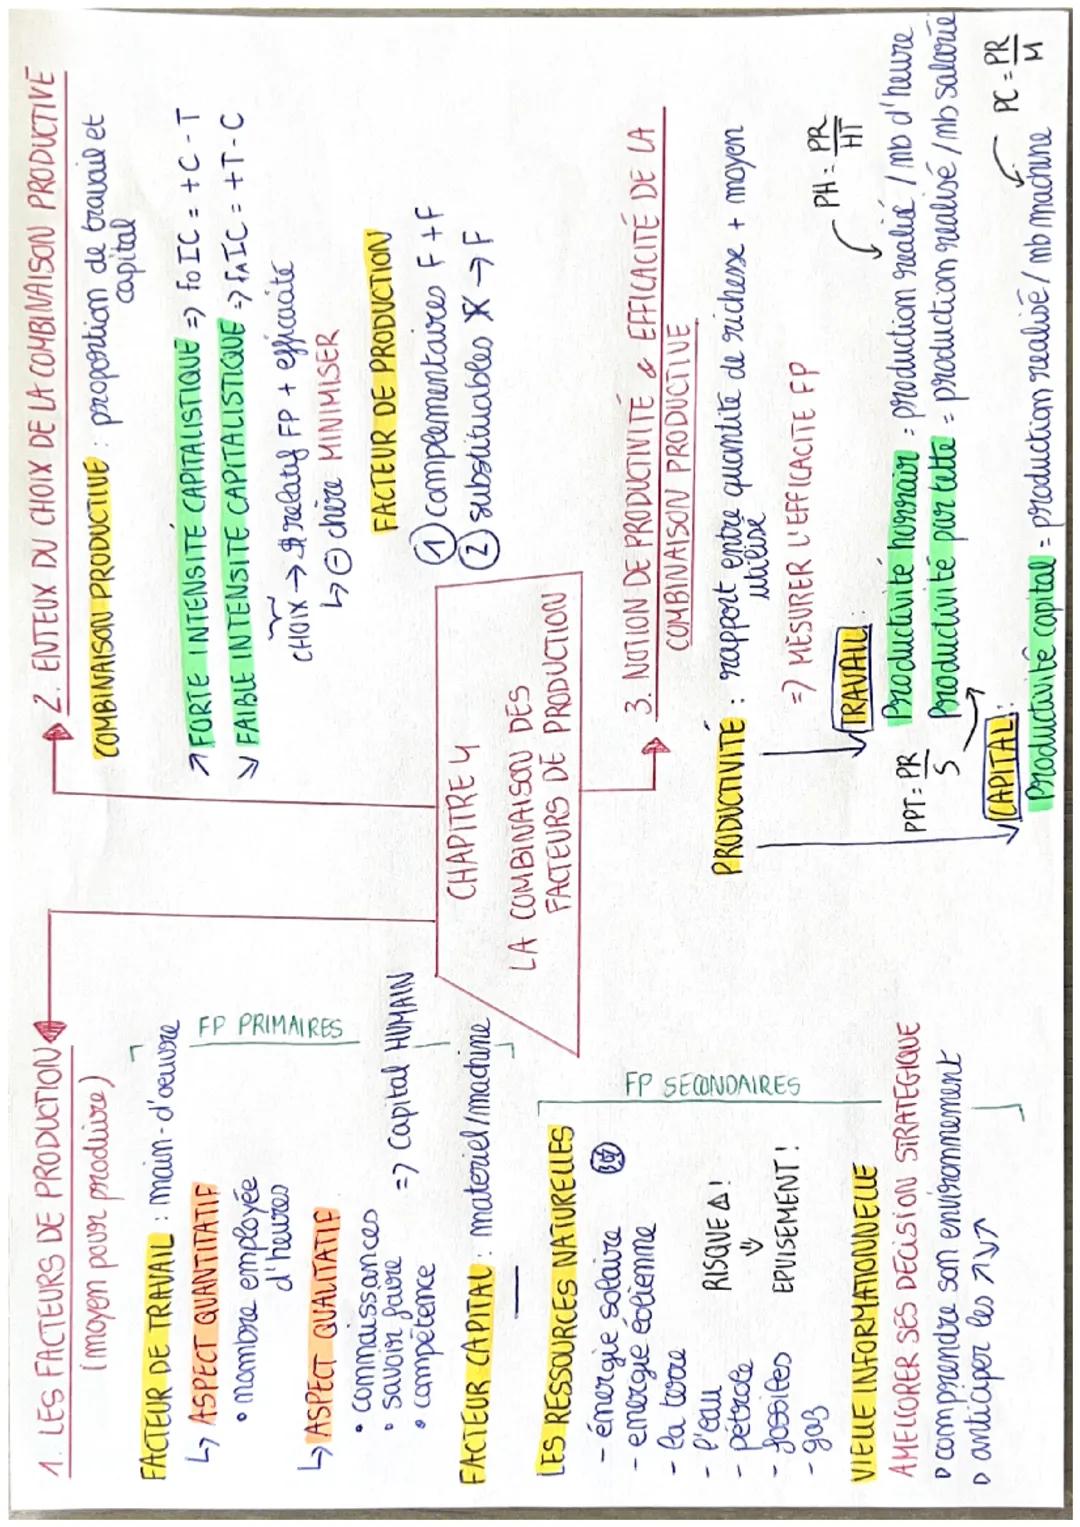 1. LES FACTEURS DE PRODUCTION
(moyen pour produire)
FACTEUR DE TRAVAIL : main-d'oeuvre
↳ ASPECT QUANTITATIF
• nombre employée
d'heures
↳ ASPECT QUALITATIF
• connaissances
• savoir faire
• compétence
=> Capital HUMAIN
FP PRIMAIRES
FACTEUR CAPITAL : materiel/machine
LES RESSOURCES NATURELLES
- énergie solaire
- energie éolienne
- la terre
- l'eau
- pétrole
- fossiles
- gaz
RISQUE !
EPUISEMENT !
FP SECONDAIRES
VIELLE INFORMATIONNELLE
AMELIORER SES DÉCISION STRATEGIQUE
comprendre son environnement
anticiper les ↗↘↗
CHAPITRE 4
LA COMBINAISON DES
FACTEURS DE PRODUCTION
2. ENTEUX DU CHOIX DE LA COMBINAISON PRODUCTIVE
COMBINAISON PRODUCTIVE : proportion de travail et
capital
↗ FORTE INTENSITÉ CAPITALISTIQUE => FoIC = +C - T
↘ FAIBLE INTENSITÉ CAPITALISTIQUE => FAIC = +T - C
CHOIX → relatif FP + efficacité
↳ ⊖ chère MINIMISER
FACTEUR DE PRODUCTION
① complementaires F + F
② substituables → F
3. NOTION DE PRODUCTIVITÉ & EFFICACITÉ DE LA
COMBINAISON PRODUCTIVE
PRODUCTIVITÉ : rapport entre quantite de richesse + moyen
utilise
=> MESURER L'EFFICACITE FP
TRAVAIL :
PH = PR/HT
Productivité horrair = production realié / nb d'heure
Productivité par tette = production realisé / nb salarié
PPT = PR/S
CAPITAL :
PC = PR/M
Productivité capital = production realisé / nb machine